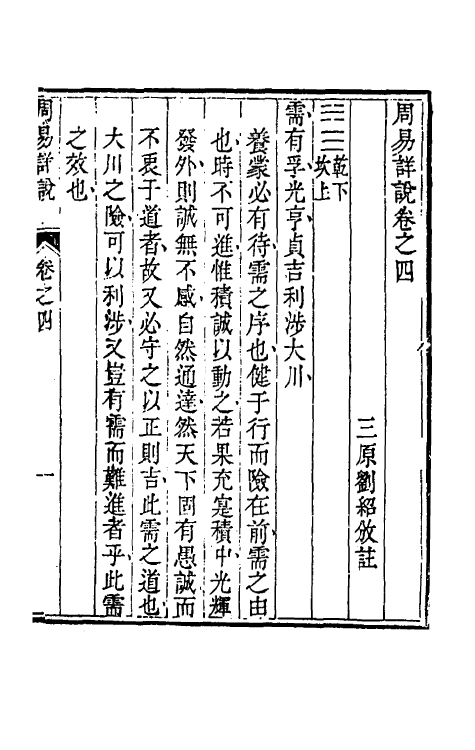 周易詳說卷之四
三原劉紹攽註
乾下
坎上
需有孚光亨貞吉利涉大川
養蒙必有待需之序也健于行而險在前需之由
也時不可進惟積誠以動之若果充寔積中光輝
發外則誠無不感自然通達然天下固有愚誠而
不衷于道者故又必守之以正則吉此需之道也
大川之險可以利涉又豈有需而難進者乎此需
之效也
周易詳說
卷之四
一